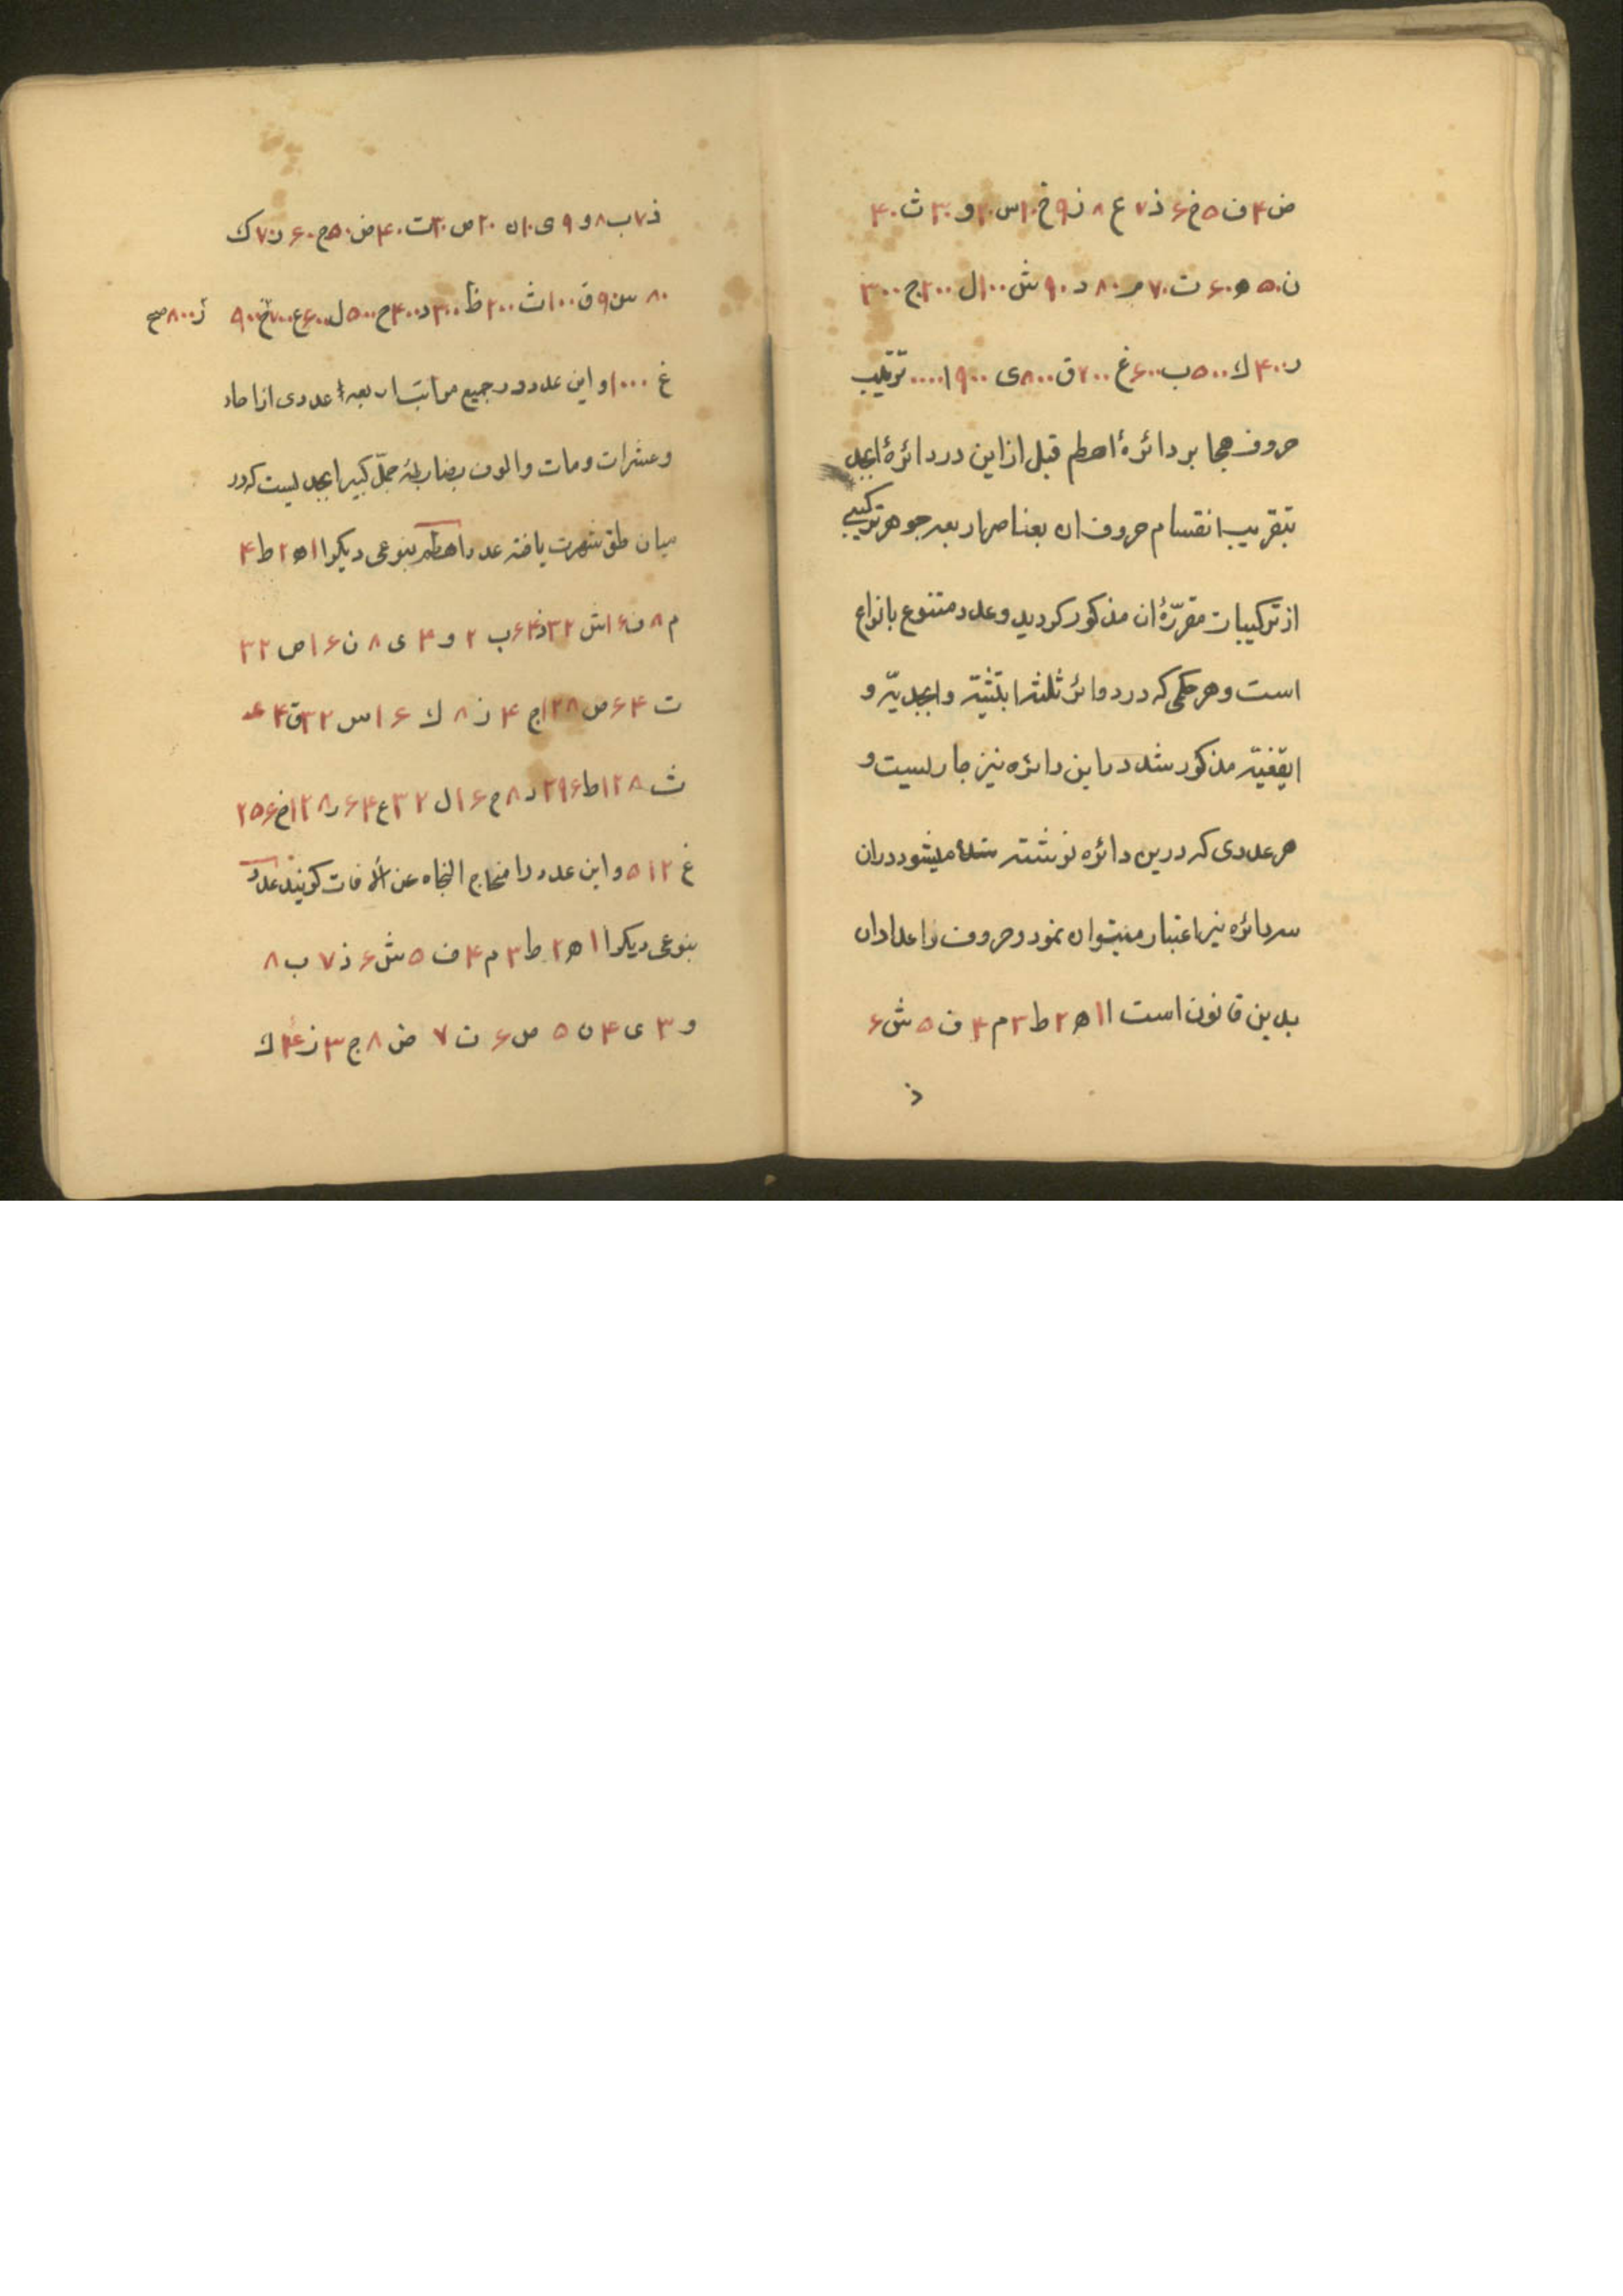 ض ۴ ف ۵ خ ۶ ذ ۷ ع ۸ ز ۹ خ ۱۰ س ۲۰ و ۳۰ ث ۴۰
ن ۵۰ ه ۶۰ ت ۷۰ م ۸۰ د ۹۰ ش ۱۰۰ ل ۲۰۰ ج ۳۰۰
ر ۴۰۰ ك ۵۰۰ ب ۶۰۰ غ ۷۰۰ ق ۸۰۰ ی ۹۰۰ ا ۱۰۰۰ ترتیب
حروف هجا بر دائرهٔ اهطم قبل از این در دائرهٔ ابجد
بتقریب انقسام حروف ان بعناصر اربعه جوهر ترکیبی
از ترکیبات مقرّرهٔ ان مذکور کردید و عدد متنوع بانواع
است و هر حکمی که در دوائر ثلثه ابتثیّه و ابجدیّه و
ایقغیّه مذکور شد در این دائره نیز جاریست و
هر عددی که درین دائره نوشته شده میشود در ان
سه دائره نیز اعتبار میتوان نمود و حروف را اعداد ان
بدین قانون است ا ۱ ه ۲ ط ۳ م ۴ ف ۵ ش ۶
ذ
ذ ۷ ب ۸ و ۹ ی ۱۰ ن ۲۰ ص ۳۰ ت ۴۰ ض ۵۰ ج ۶۰ ز ۷۰ ك
۸۰ س ۹۰ ق ۱۰۰ ث ۲۰۰ ظ ۳۰۰ د ۴۰۰ ح ۵۰۰ ل ۶۰۰ ع ۷۰۰ خ ۹۰۰ ر ۸۰۰ صح
غ ۱۰۰۰ و این عدد در جمیع مراتب اربعه عددی از احاد
و عشرات و مات و الوف بضابطهٔ جمّل کبیر ابجدیست که در
میان خلق شهرت یافته عدد اهطم بنوعی دیکر ا ۱ ه ۲ ط ۴
م ۸ ف ۱۶ ش ۳۲ ذ ۶۴ ب ۲ و ۴ ی ۸ ن ۱۶ ص ۳۲
ت ۶۴ ض ۱۲۸ ج ۴ ز ۸ ك ۱۶ س ۳۲ ق ۶۴
ث ۱۲۸ ظ ۲۹۶ د ۸ ح ۱۶ ل ۳۲ ع ۶۴ ر ۱۲۸ خ ۲۵۶
غ ۵۱۲ و این عدد را منحاج النجاه عن الآفات کویند عدد
بنوعی دیکر ا ۱ ه ۲ ط ۳ م ۴ ف ۵ ش ۶ ذ ۷ ب ۸
و ۳ ی ۴ ن ۵ ص ۶ ت ۷ ض ۸ ج ۳ ز ۴ ك